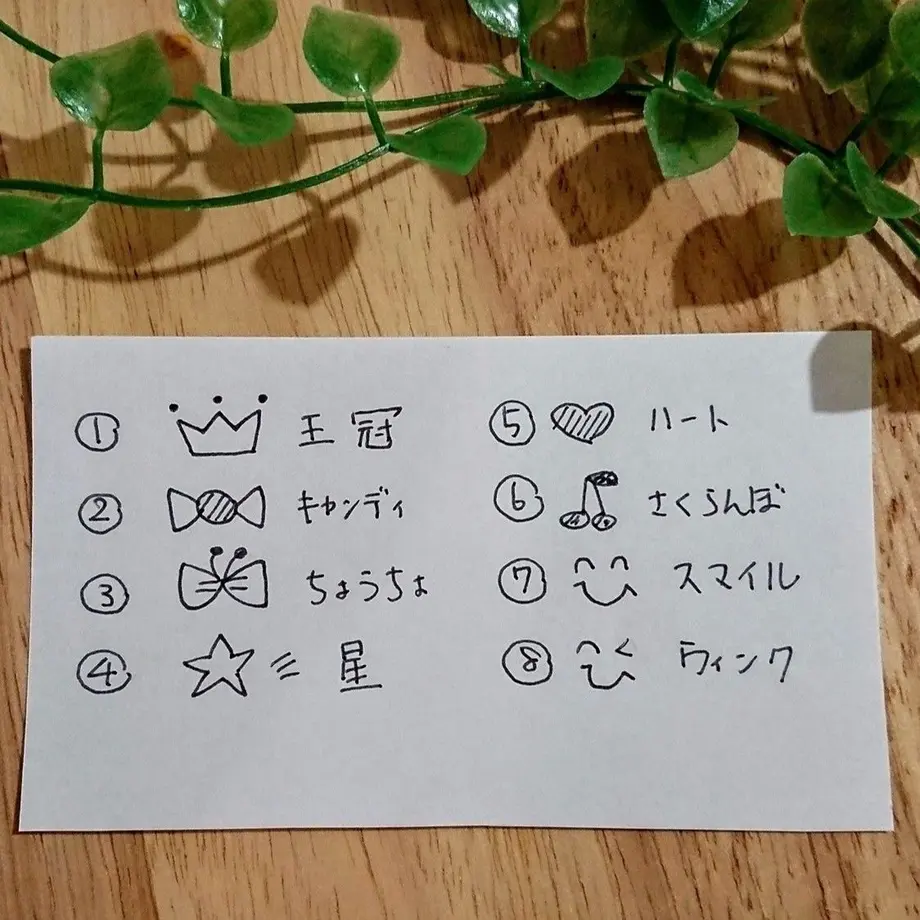 ① 王冠
② キャンディ
③ ちょうちょ
④ 星
⑤ ハート
⑥ さくらんぼ
⑦ スマイル
⑧ ウィンク